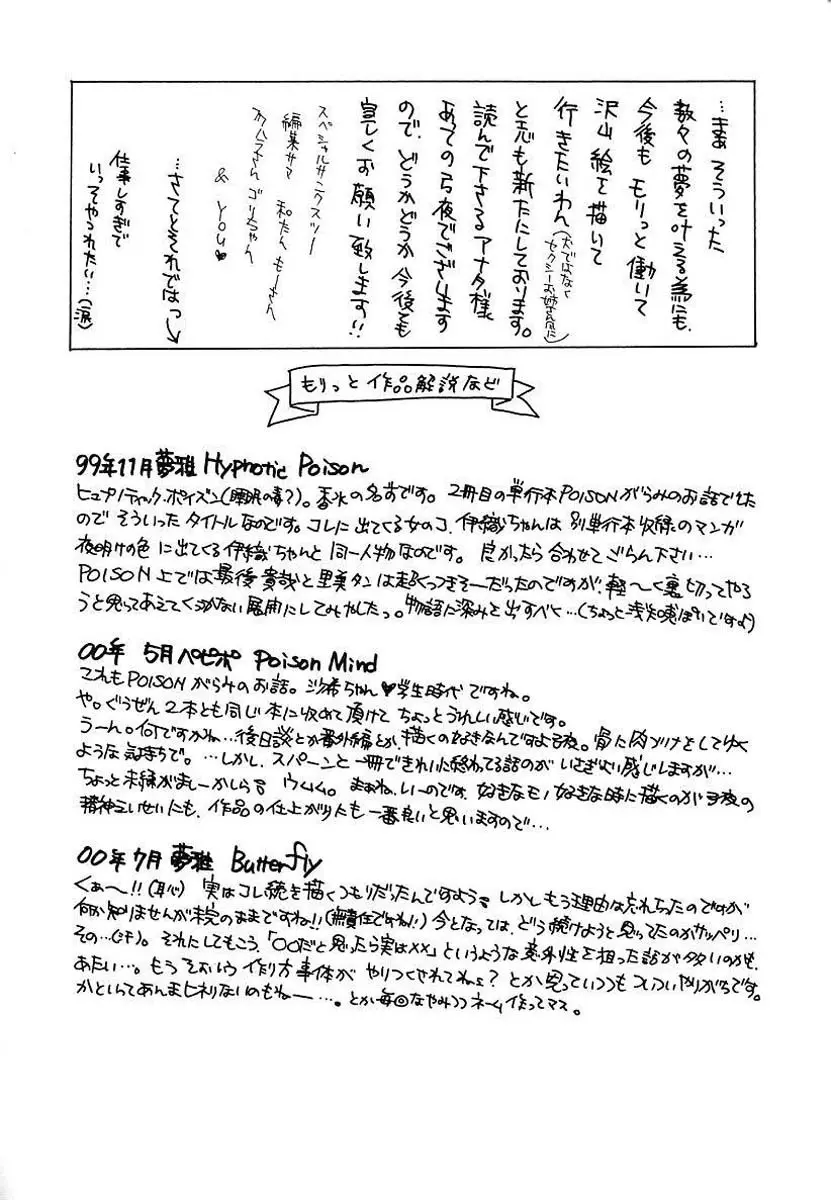 …まあ そういった
数々の夢を叶える為にも、
今後も モリっと働いて
沢山 絵を描いて
行きたいわん(犬ではなく
セクシーお姉さん風に)
と志も新たにしております。
読んで下さるアナタ様
あっての 夜でございます
ので、どうかどうか今後とも
宜しくお願い致します!!
スペシャルサンクスツー
編集サマ 和たん もーさん
さん ゴリちゃん
& YOU♥
…さてとそれではっ↓
仕事しすぎで
いっそやつれたい…(涙)
もりっと 作品解説など
99年11月夢雅 Hypnotic Poison
ヒュプノティック・ポイズン(睡眠の毒?)。香水の名前です。2冊目の単行本POISONがらみのお話でした
ので そういった タイトルなのです。コレに出てくる女のコ、伊織ちゃんは 別単行本収録のマンガ
夜明けの色 に出てくる伊織ちゃんと 同一人物なのです。良かったら 合わせてごらん下さい…
POISON上では最後 貴哉と里美タンは超くっつきそーだったのですが、軽〜く裏切ってやろ
うと思ってあえてくっつかない展開にしてみやしたっ。物語に深みを出すべく…(ちょっと浅知恵っぽいですよ)
00年 5月ペピポ Poison Mind
これもPOISONがらみのお話。沙希ちゃん♥学生時代ですね。
や。ぐうぜん2本とも同じ本に収めて頂けて ちょっとうれしい感じです。
うーん。何ですかね…後日談とか番外編とか、描くの好きなんですよ 夜。骨に肉づけをしてゆく
ような気持ちで。…しかし、スパーンと一冊できれいに終わってる話のが いさぎよい感じしますが…
ちょっと未練がましーかしら。ウムム。まぁね、いーのです、好きなモノ 好きな時に描くのが 夜の
精神えいせいにも、作品の仕上がりにも 一番良いと思いますので…
00年7月 夢雅 Butterfly
くぁ〜!!(恥) 実はコレ続きを描くつもりだったんですよう。しかしもう理由は忘れちったのですが
何か知りませんが未完のままですね!!(無責任ですね!)今となっては、どう続けようと思ってたのかサッパリ…
その…(汗)。それにしてもこう、「○○だと思ったら実は××」というような意外性を狙った話が多いのかも、
あたい…。もう そおいう 作り方 事体が やりつくされてねぇ? とか思っていつつも ついついやりがちです。
かといってあんまヒネリないのもねー…。とか毎回なやみつつネーム作ってマス。